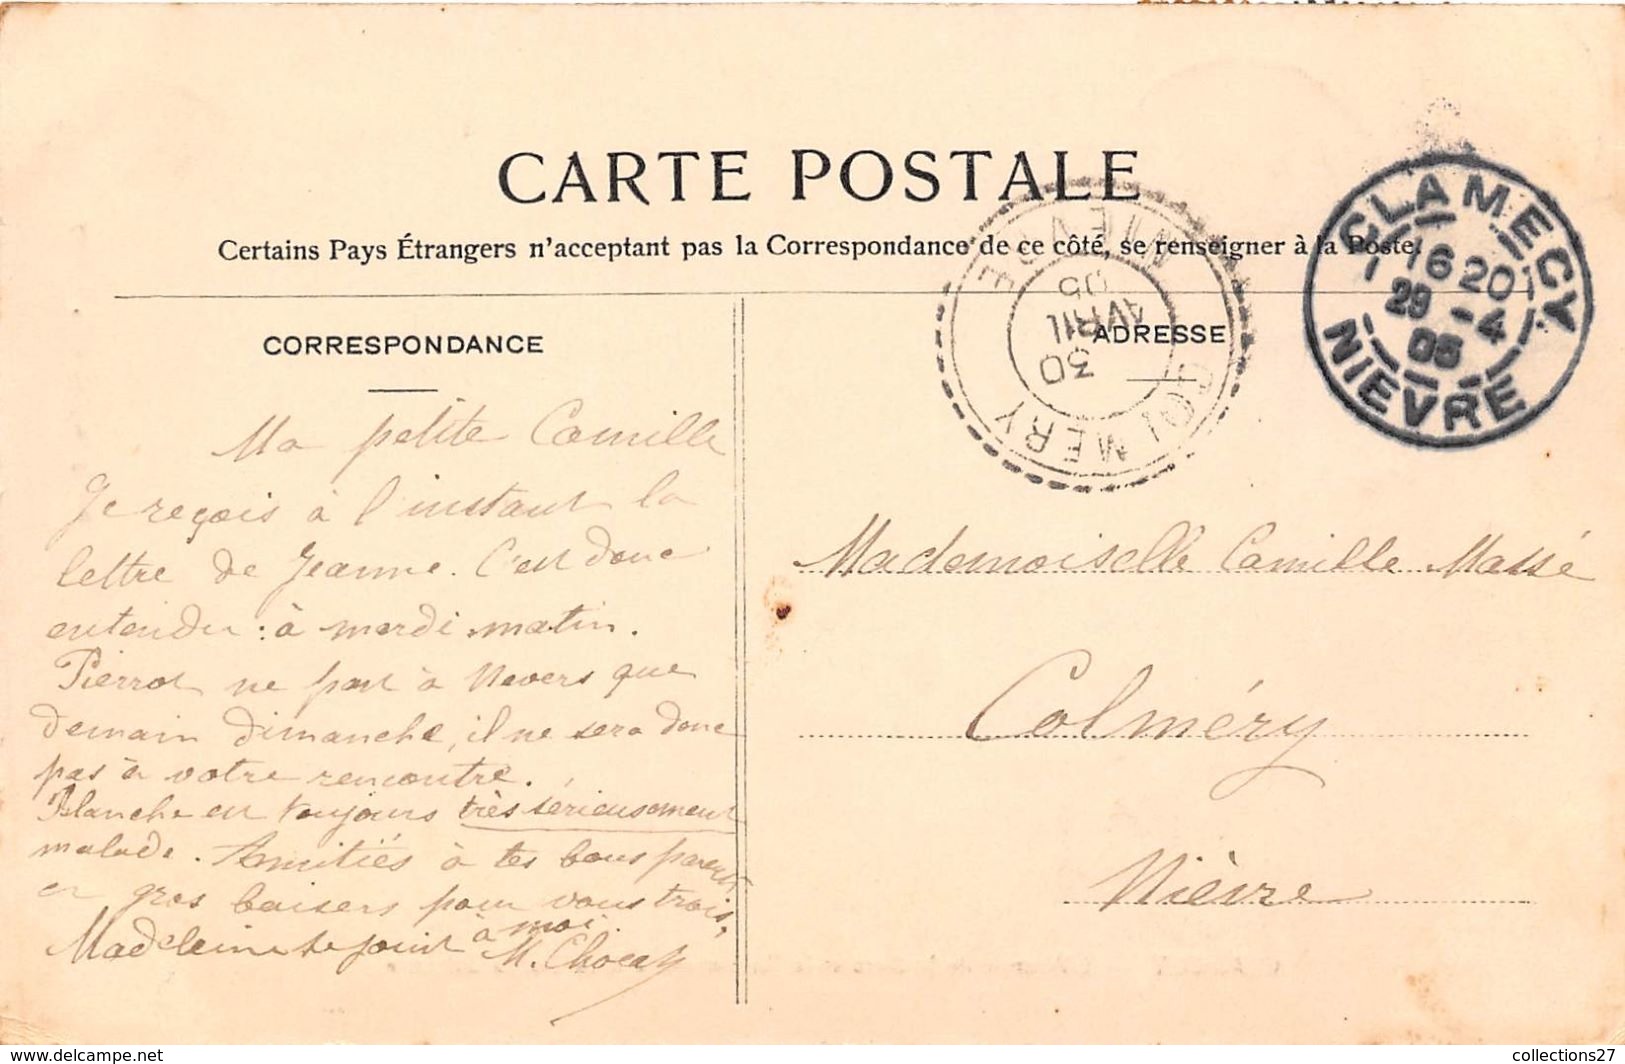 CARTE POSTALE
Certains Pays Étrangers n'acceptant pas la Correspondance de ce côté, se renseigner à la Poste.
CORRESPONDANCE
Ma petite Camille
Je reçois à l'instant la
lettre de Jeanne. C'est donc
entendu : à mardi matin.
Pierrot ne part à Nevers que
demain dimanche, il ne sera donc
pas à votre rencontre.
Blanche est toujours très sérieusement
malade. Amitiés à tes bons parents
et gros baisers pour vous trois.
Madeleine se joint à moi
M.
ADRESSE
Mademoiselle Camille Massé
Colméry
Nièvre
COLMERY
30
AVRIL
05
NIEVRE
CLAMECY
16 20
29 -4
05
NIEVRE
www.delcampe.net
collections27